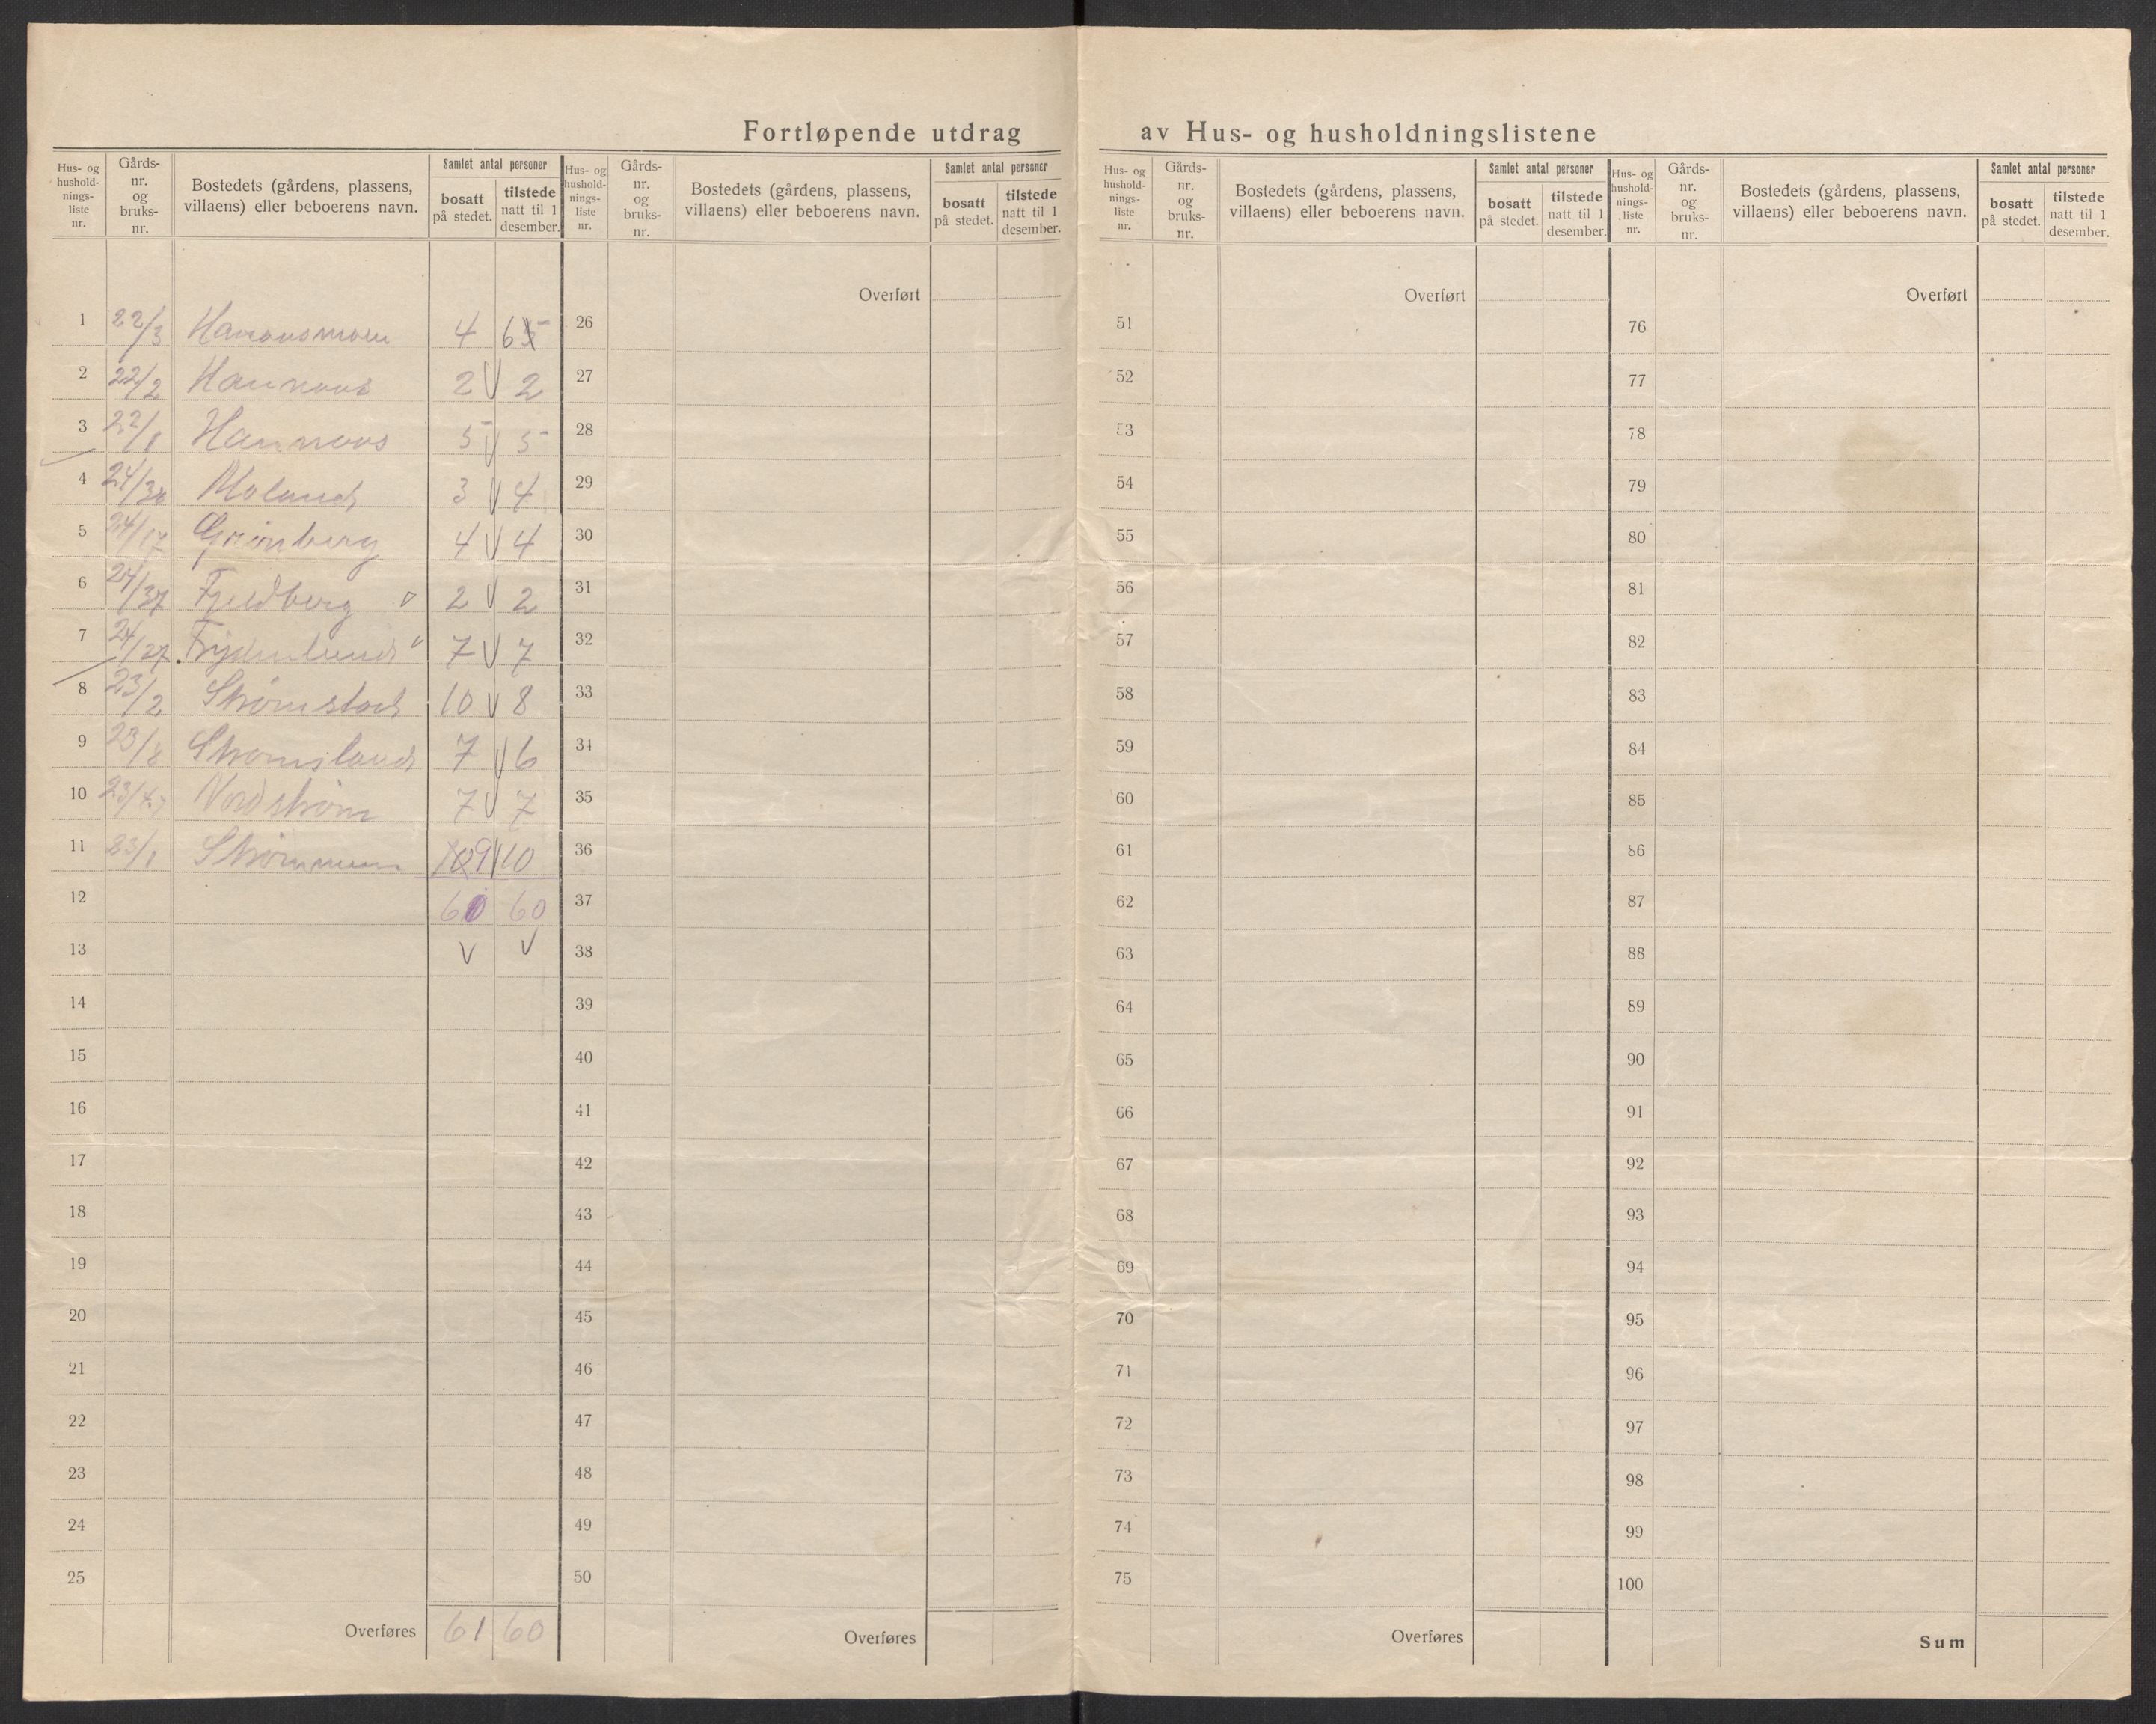 Fortløpende utdrag av Hus- og husholdningslistene
Hus- og husholdnings-liste nr. Gårds-nr. og bruks-nr. Bostedets (gårdens, plassens, villaens) eller beboerens navn. Samlet antal personer bosatt på stedet. tilstede natt til 1 desember.
Hus- og husholdnings-liste nr. Gårds-nr. og bruks-nr. Bostedets (gårdens, plassens, villaens) eller beboerens navn. Samlet antal personer bosatt på stedet. tilstede natt til 1 desember.
Hus- og husholdnings-liste nr. Gårds-nr. og bruks-nr. Bostedets (gårdens, plassens, villaens) eller beboerens navn. Samlet antal personer bosatt på stedet. tilstede natt til 1 desember.
Hus- og husholdnings-liste nr. Gårds-nr. og bruks-nr. Bostedets (gårdens, plassens, villaens) eller beboerens navn. Samlet antal personer bosatt på stedet. tilstede natt til 1 desember.
1 22/3 4 5
2 22/2 2 2
3 22/1 5 5
4 24/30 Moland 3 4
5 24/17 Grønberg 4 4
6 24/37 Fjeldberg 2 2
7 24/27 Frydenlund 7 7
8 23/2 Strømstad 10 8
9 23/8 Strømsland 7 6
10 Nordstrøm 7 7
11 23/1 Strømmen 9 10
12 60 60
13
14
15
16
17
18
19
20
21
22
23
24
25
Overføres 61 60
Overført
26
27
28
29
30
31
32
33
34
35
36
37
38
39
40
41
42
43
44
45
46
47
48
49
50
Overføres
Overført
51
52
53
54
55
56
57
58
59
60
61
62
63
64
65
66
67
68
69
70
71
72
73
74
75
Overføres
Overført
76
77
78
79
80
81
82
83
84
85
86
87
88
89
90
91
92
93
94
95
96
97
98
99
100
Sum